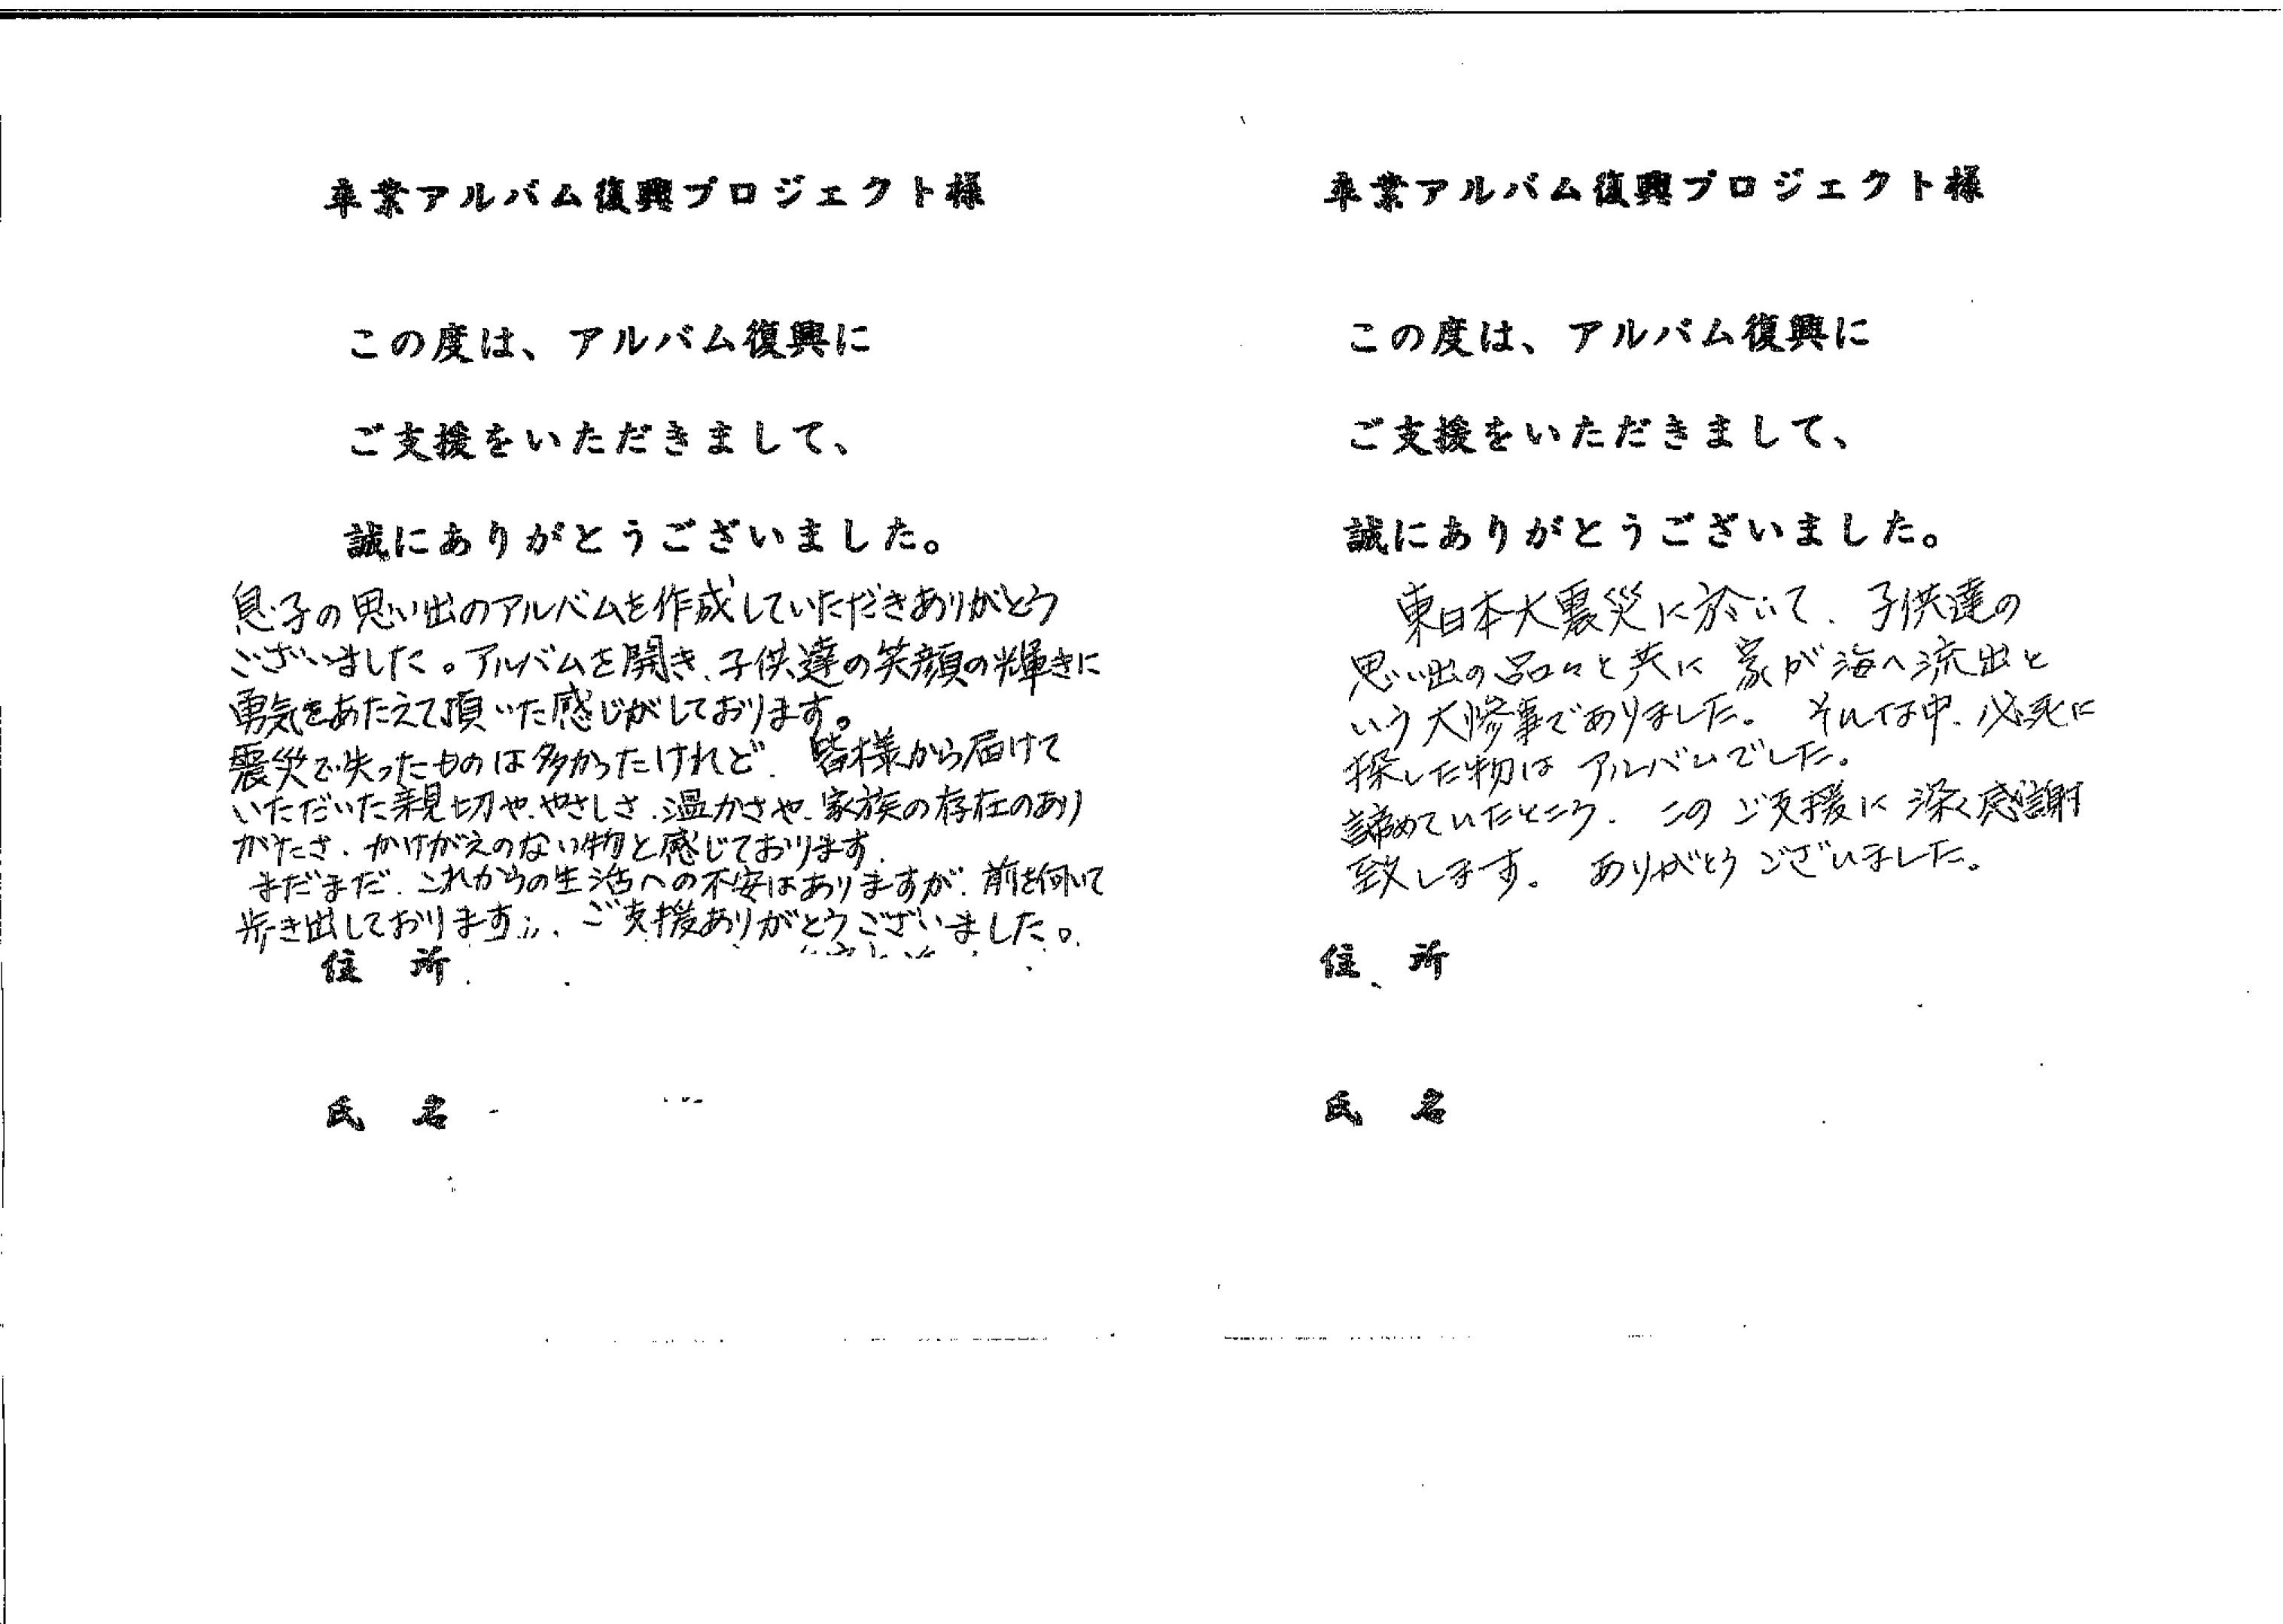 卒業アルバム復興プロジェクト様
この度は、アルバム復興に
ご支援をいただきまして、
誠にありがとうございました。
息子の思い出のアルバムを作成していただきありがとう
ございました。アルバムを開き、子供達の笑顔の輝きに
勇気をあたえて頂いた感じがしております。
震災で失ったものは多かったけれど、皆様から届けて
いただいた親切や、やさしさ、温かさや、家族の存在のあり
がたさ、かけがえのない物と感じております。
まだまだ、これからの生活への不安はありますが、前を向いて
歩き出しております。ご支援ありがとうございました。
住所
氏名
卒業アルバム復興プロジェクト様
この度は、アルバム復興に
ご支援をいただきまして、
誠にありがとうございました。
東日本大震災に於いて、子供達の
思い出の品々と共に家が海へ流出と
いう大惨事でありました。それな中、必死に
探した物はアルバムでした。
諦めていたところ、このご支援に深く感謝
致します。ありがとうございました。
住所
氏名